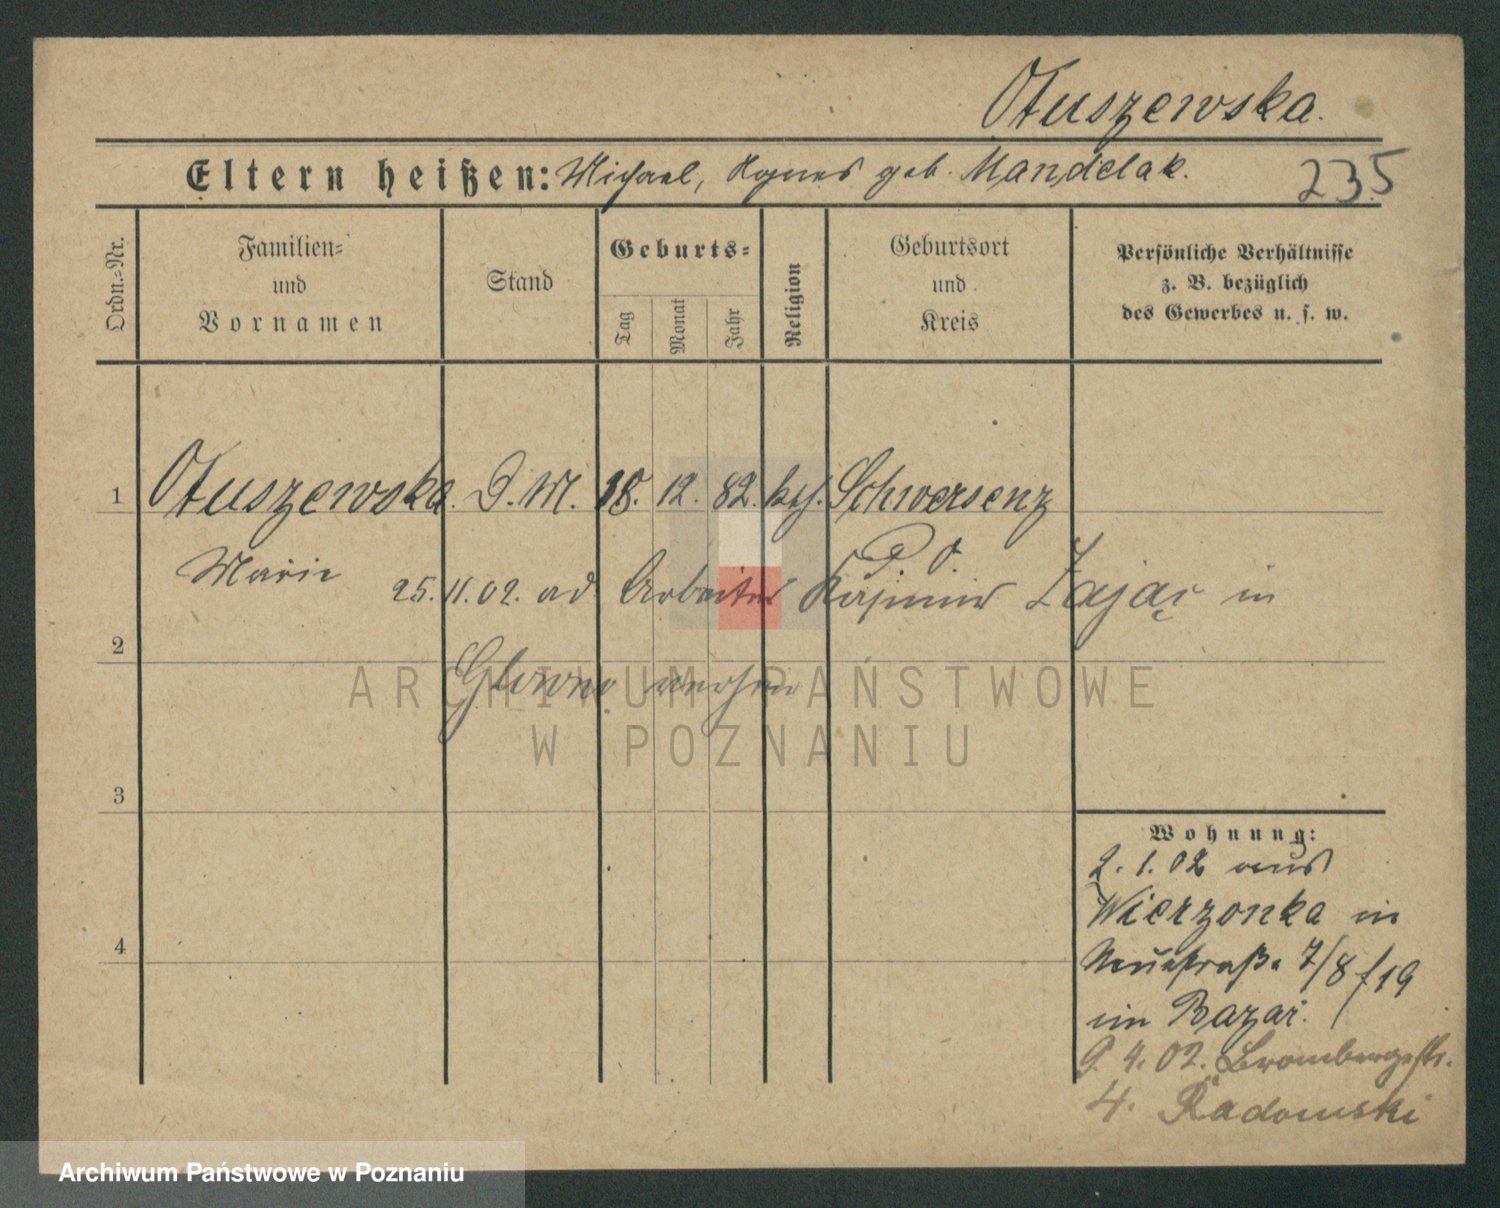 Otuszewska.
Eltern heißen: Michael, Agnes geb. Mandelak.
235
Ordn.-Nr.
Familien-
und
Vornamen
Stand
Geburts-
Tag
Monat
Jahr
Religion
Geburtsort
und
Kreis
Persönliche Verhältnisse
z. B. bezüglich
des Gewerbes u. s. w.
1 Otuszewska. D. M. 18. 12. 82. kth. Schwersenz
P. O.
Marie 25. 11. 02. ad Arbeiter Kasimir Zając in
2
Glowno
ARCHIWUM PAŃSTWOWE
W POZNANIU
3
Wohnung:
2. 1. 02 aus
Wierzonka in
Neuestraße 7/8 f 19
im Bazar.
4
9. 4. 02. Brombergerstr.
4. Radomski
Archiwum Państwowe w Poznaniu